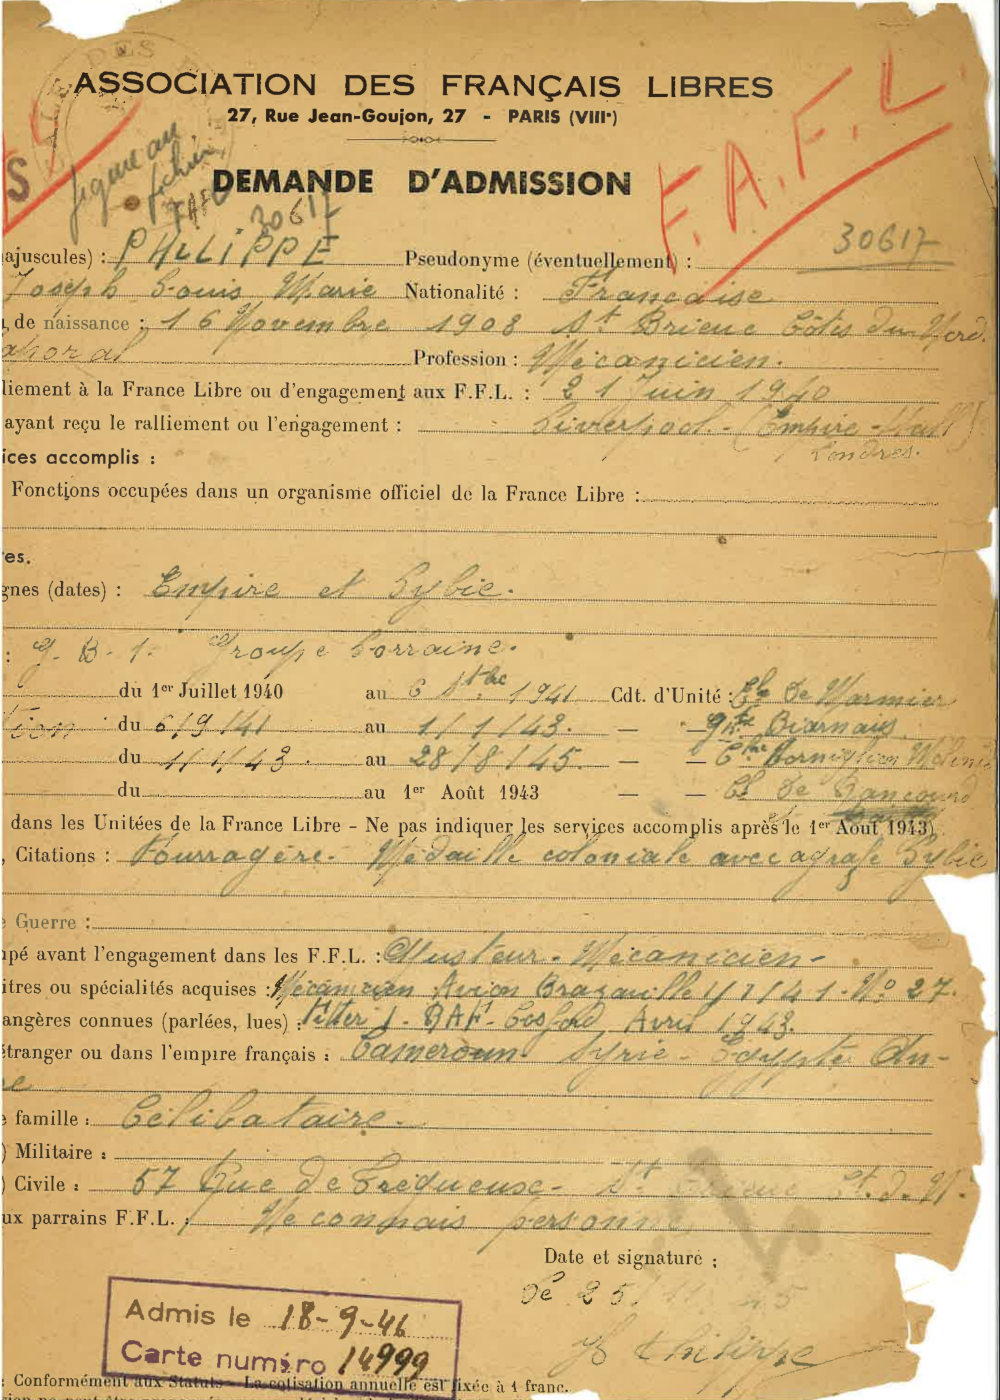 ASSOCIATION DES FRANÇAIS LIBRES
27, Rue Jean-Goujon, 27 - PARIS (VIIIᵉ)
F.A.F.L
figure au fichier FAFL
30617
DEMANDE D'ADMISSION
30617
ajuscules) : PHILIPPE Pseudonyme (éventuellement) :
Joseph Louis Marie Nationalité : Française
de naissance : 16 Novembre 1908 St Brieuc Côtes du Nord.
aporal Profession : Mécanicien.
liement à la France Libre ou d'engagement aux F.F.L. : 21 Juin 1940
ayant reçu le ralliement ou l'engagement : Liverpool - (Empire-Hall)
Londres.
ices accomplis :
Fonctions occupées dans un organisme officiel de la France Libre :
es.
gnes (dates) : Empire et Lybie.
: G. B. 1. Groupe Lorraine.
du 1er Juillet 1940 au 6 1941 Cdt. d'Unité : de Marmier
tion du 6/9/41 au 1/1/43. — — Biarnais
du 1/1/43. au 28/8/45. — — Corniglion
du au 1er Août 1943 — — Cl de Rancourt
dans les Unitées de la France Libre - Ne pas indiquer les services accomplis après le 1er Août 1943)
, Citations : Fourragère. Médaille coloniale avec agrafe Lybie
Guerre :
upé avant l'engagement dans les F.F.L. : Ajusteur - Mécanicien -
itres ou spécialités acquises : Mécanicien Avion Brazaville 1/7/41. No 27.
angères connues (parlées, lues) : Fitter I - RAF - Cosford Avril 1943.
étranger ou dans l'empire français : Cameroun. Syrie - Egypte An-
e
famille : Célibataire.
) Militaire :
) Civile : 57 Rue de Trégueuse - St Brieuc Ct. d. N.
ux parrains F.F.L. : Ne connais personne
Date et signature :
Le 25/11/45
Philippe
Admis le 18-9-46
Carte numéro 14999
: Conformément aux Statuts - La cotisation annuelle est fixée à 1 franc.